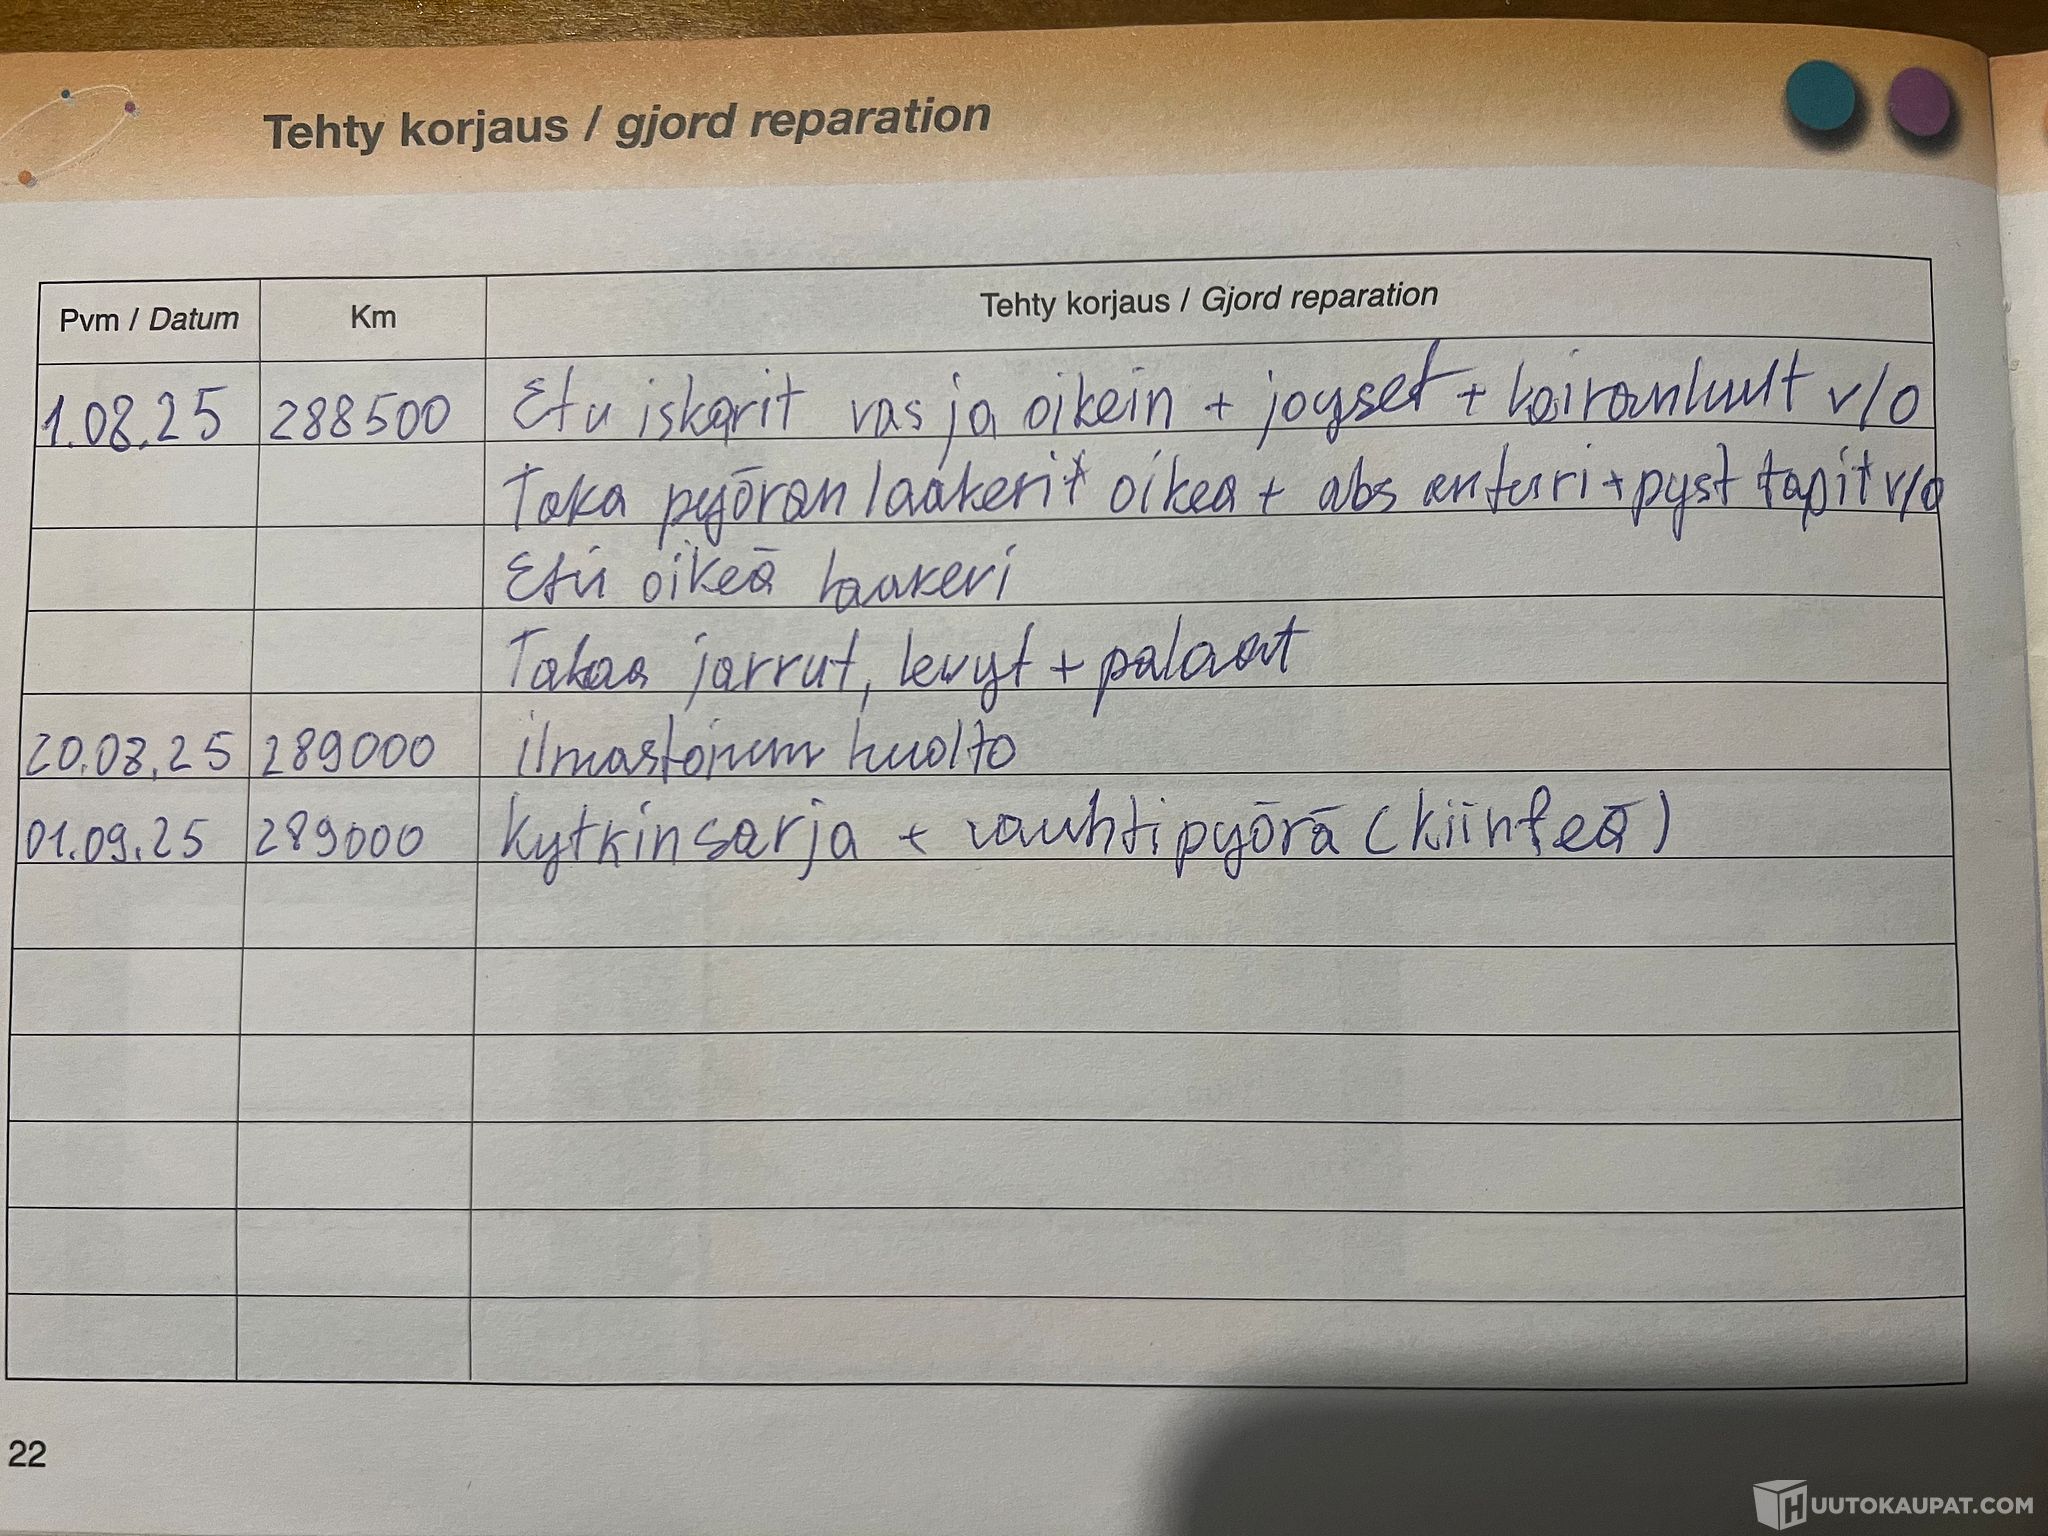 Tehty korjaus / gjord reparation
Pvm / Datum Km Tehty korjaus / Gjord reparation
1.08.25 288500 Etu iskarit vas ja oikein + joyset + koiranluut v/o
Taka pyörän laakerit oikea + abs anturi + pyst tapit v/o
Etu oikeä laakeri
Takaa jarrut, levyt + palaat
20.08.25 289000 ilmastoinnn huolto
01.09.25 289000 kytkinsarja + vauhtipyörä (kiinteä)
22
HUUTOKAUPAT.COM